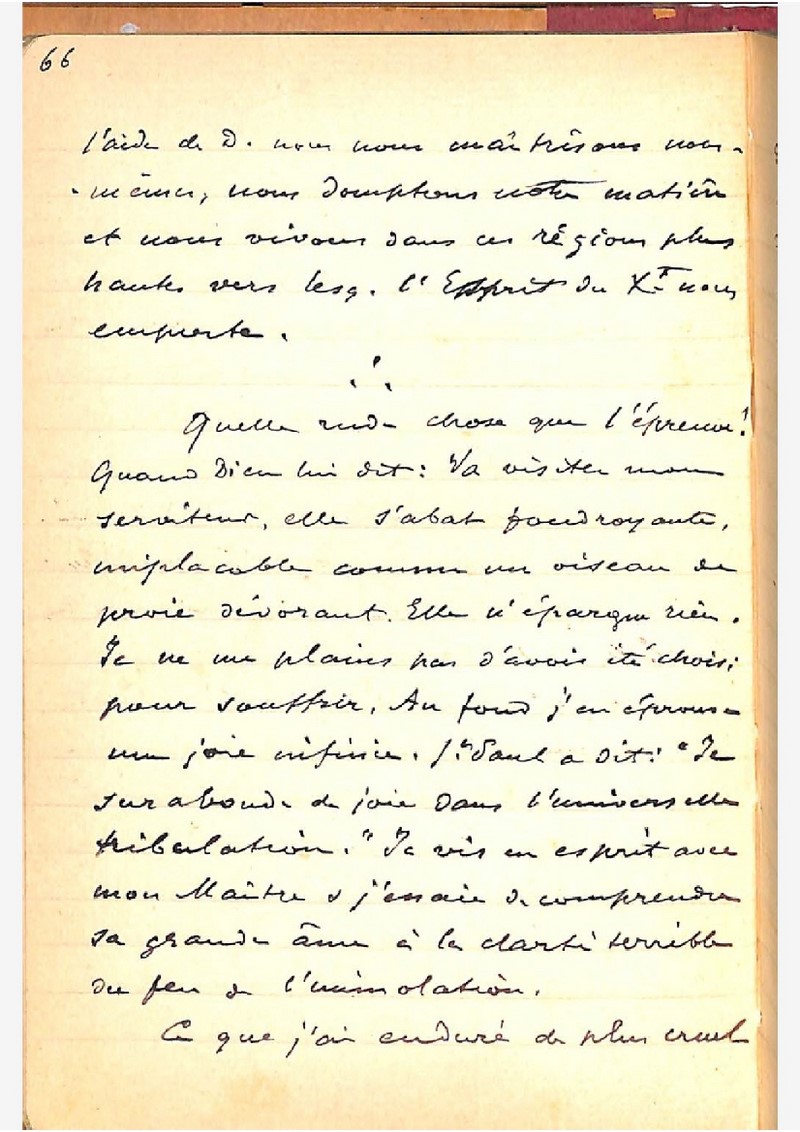 66
l'aide de D. nous nous maîtrisons nous-
-mêmes, nous domptons notre matière
et nous vivons dans ces régions plus
hautes vers lesq. l'Esprit du Xt nous
emporte.
Quelle rude chose que l'épreuve!
Quand Dieu lui dit: Va visiter mon
serviteur, elle s'abat foudroyante,
implacable comme un oiseau de
proie dévorant. Elle n'épargne rien.
Je ne me plains pas d'avoir été choisi
pour souffrir. Au fond j'en éprouve
une joie infinie. St Paul a dit: "Je
surabonde de joie dans l'universelle
tribulation." Je vis en esprit avec
mon Maître & j'essaie de comprendre
sa grande âme à la clarté terrible
du feu de l'immolation.
Ce que j'ai enduré de plus cruel